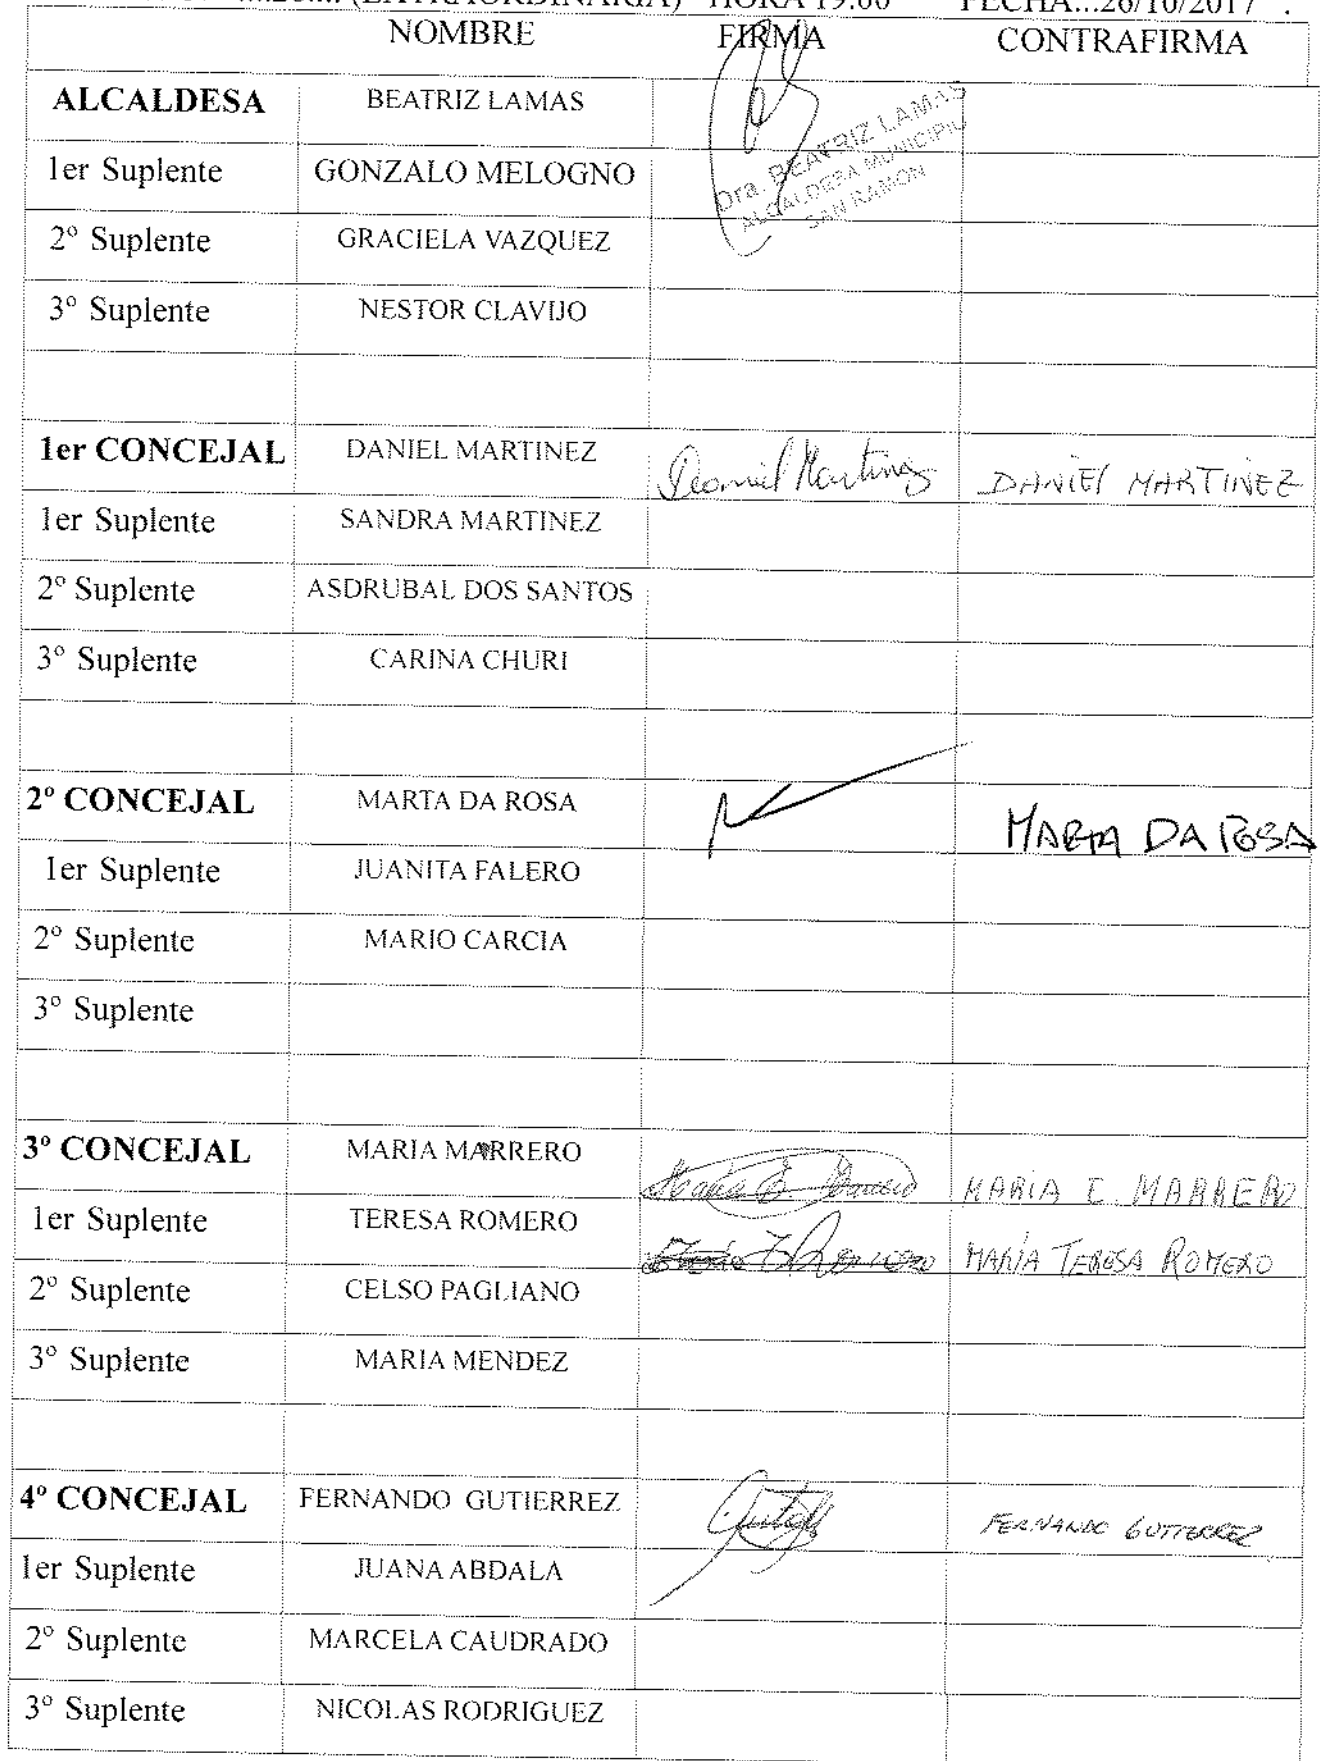 (EXTRAORDINARIA) HORA 19:00 FECHA...26/10/2017 .
NOMBRE FIRMA CONTRAFIRMA
ALCALDESA BEATRIZ LAMAS
Dra. BEATRIZ LAMAS
ALCALDESA MUNICIPIO
SAN RAMON
1er Suplente GONZALO MELOGNO
2º Suplente GRACIELA VAZQUEZ
3º Suplente NESTOR CLAVIJO
1er CONCEJAL DANIEL MARTINEZ Daniel Martinez DANIEl MARTINEZ
1er Suplente SANDRA MARTINEZ
2º Suplente ASDRUBAL DOS SANTOS
3º Suplente CARINA CHURI
2º CONCEJAL MARTA DA ROSA MARTA DA ROSA
1er Suplente JUANITA FALERO
2º Suplente MARIO CARCIA
3º Suplente
3º CONCEJAL MARIA MARRERO María E. Marrero MARIA E. MARRERO
1er Suplente TERESA ROMERO MARÍA TERESA ROMERO
2º Suplente CELSO PAGLIANO
3º Suplente MARIA MENDEZ
4º CONCEJAL FERNANDO GUTIERREZ FERNANDO GUTIERREZ
1er Suplente JUANA ABDALA
2º Suplente MARCELA CAUDRADO
3º Suplente NICOLAS RODRIGUEZ